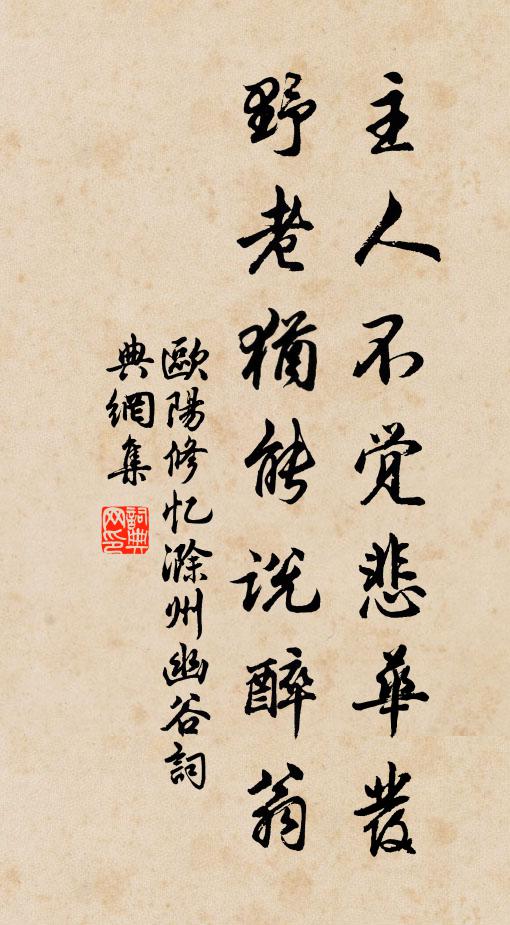 主人不觉悲華发
野老猶能说醉翁
歐陽修忆滁州幽谷詞
典網集
詞典網印